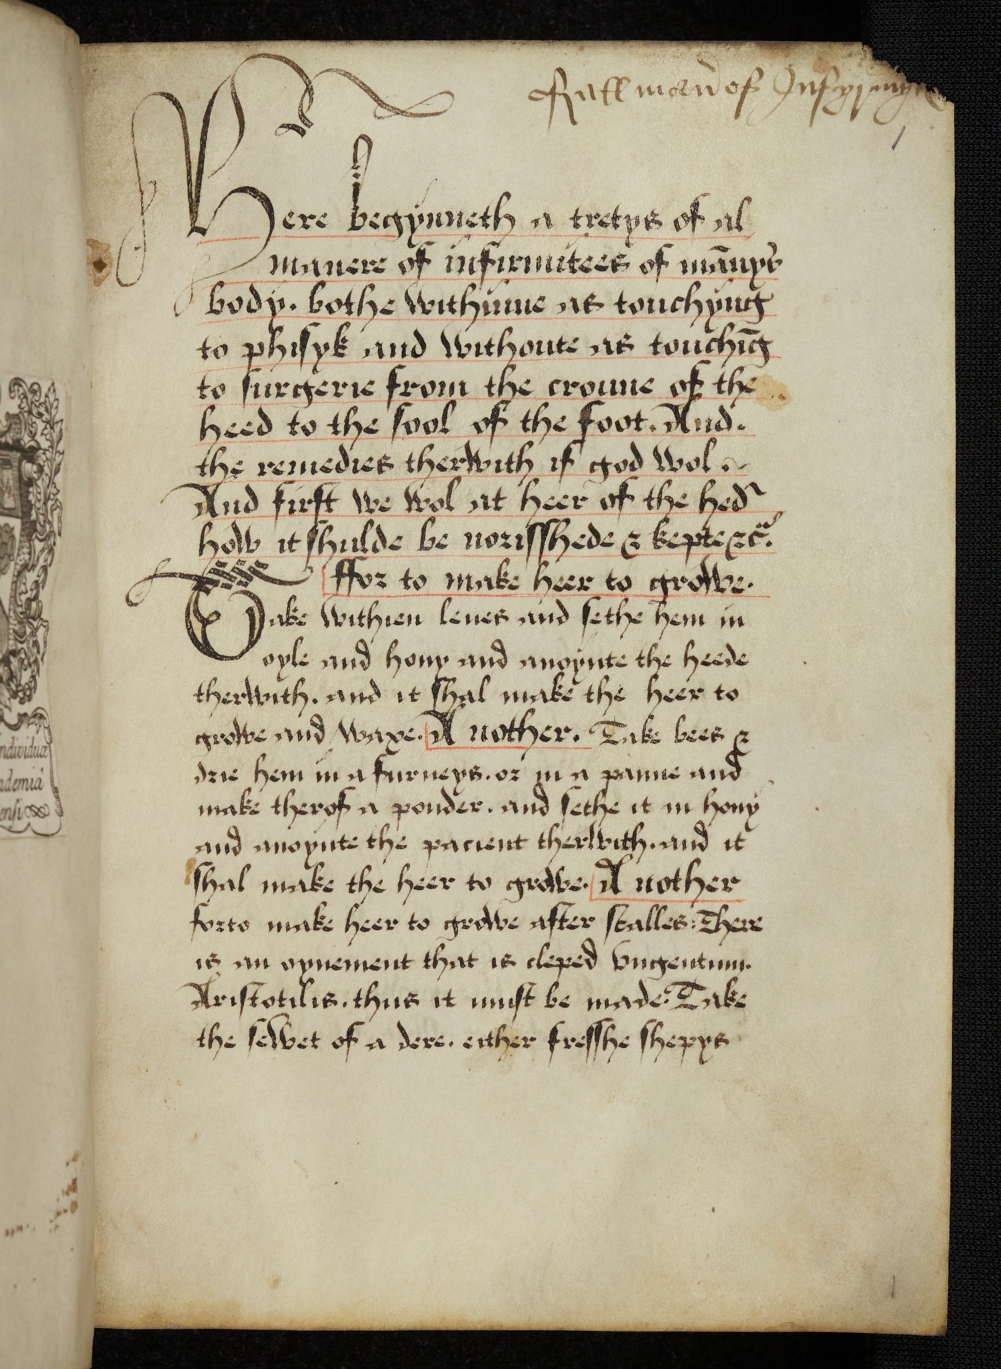 Here begynneth a tretys of al
manere of infirmitees of mānys
body. bothe withinne as touchyng
to phisyk and withoute as touchīg
to surgerie from the croune of the
heed to the sool of the foot. And.
the remedies therwith if god wol.
And first we wol at heer of the hed
how it shulde be norisshede & kepte &c.
ffor to make heer to growe.
Take withien leues and sethe hem in
oyle and hony and anoynte the heede
therwith. and it shal make the heer to
growe and waxe. A nother. Take bees &
drie hem in a furneys. or in a panne and
make therof a pouder. and sethe it in hony
and anoynte the pacient therwith. and it
shal make the heer to growe. A nother
forto make heer to growe after scalles: There
is an oynement that is cleped vngentum.
Aristotilis. thus it must be made: Take
the sewet of a dere. either fresshe shepys
ndividuæ
ademiá